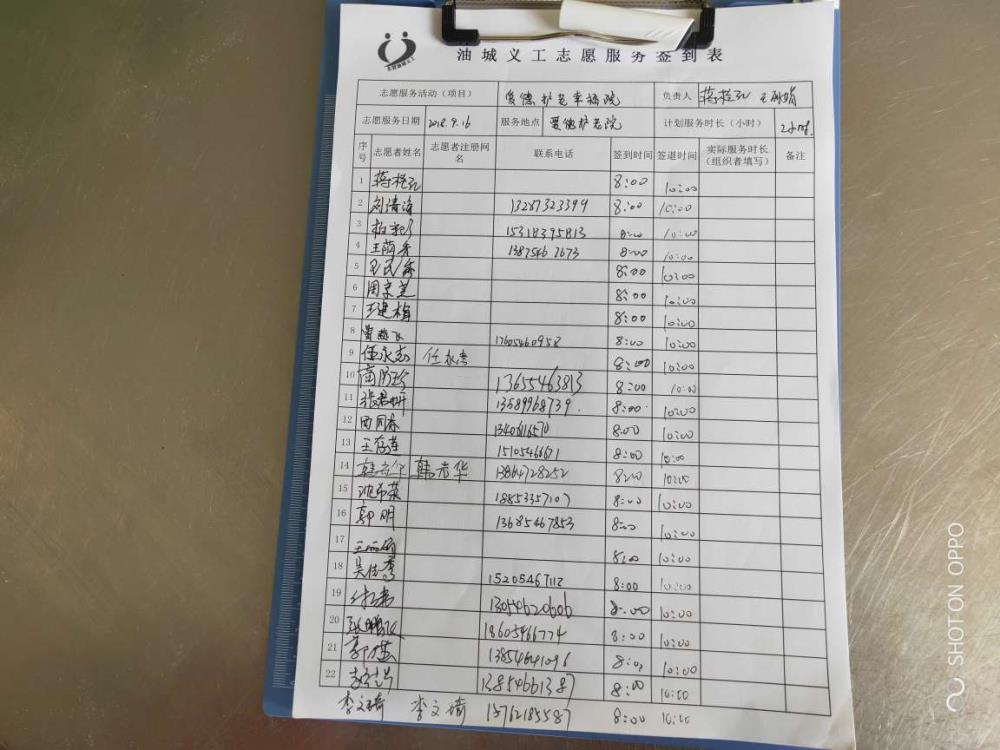 油城义工志愿服务签到表
志愿服务活动（项目） 爱德护老幸福院 负责人
志愿服务日期 2018.9.16 服务地点 爱德护老院 计划服务时长（小时） 2小时
序号 志愿者姓名 志愿者注册网名 联系电话 签到时间 签退时间 实际服务时长（组织者填写） 备注
1 8:00 10:00
2 刘清海 13287323399 8:00 10:00
3 15318395813 8:00 10:00
4 王荫香 13875462673 8:00 10:00
5 8:00 10:00
6 周京芝 8:00 10:00
7 王建梅 8:00 10:00
8 17605460958 8:00 10:00
9 任永志 任永志 8:00 10:00
10 13655463813 8:00 10:00
11 13589968739 8:00 10:00
12 8:00 10:00
13 王存莲 8:00 10:00
14 韩志华 韩志华 13864728252 8:00 10:00
15 18853357107 8:00 10:00
16 郭明 13685467853 8:00 10:00
17 8:00 10:00
18 15205467112 8:00 10:00
19 13054620606 8:00 10:00
20 8:00 10:00
21 13854641096 8:00 10:00
22 13854661387 8:00 10:00
李文琦 李文琦 13762185587 8:00 10:00
SHOT ON OPPO